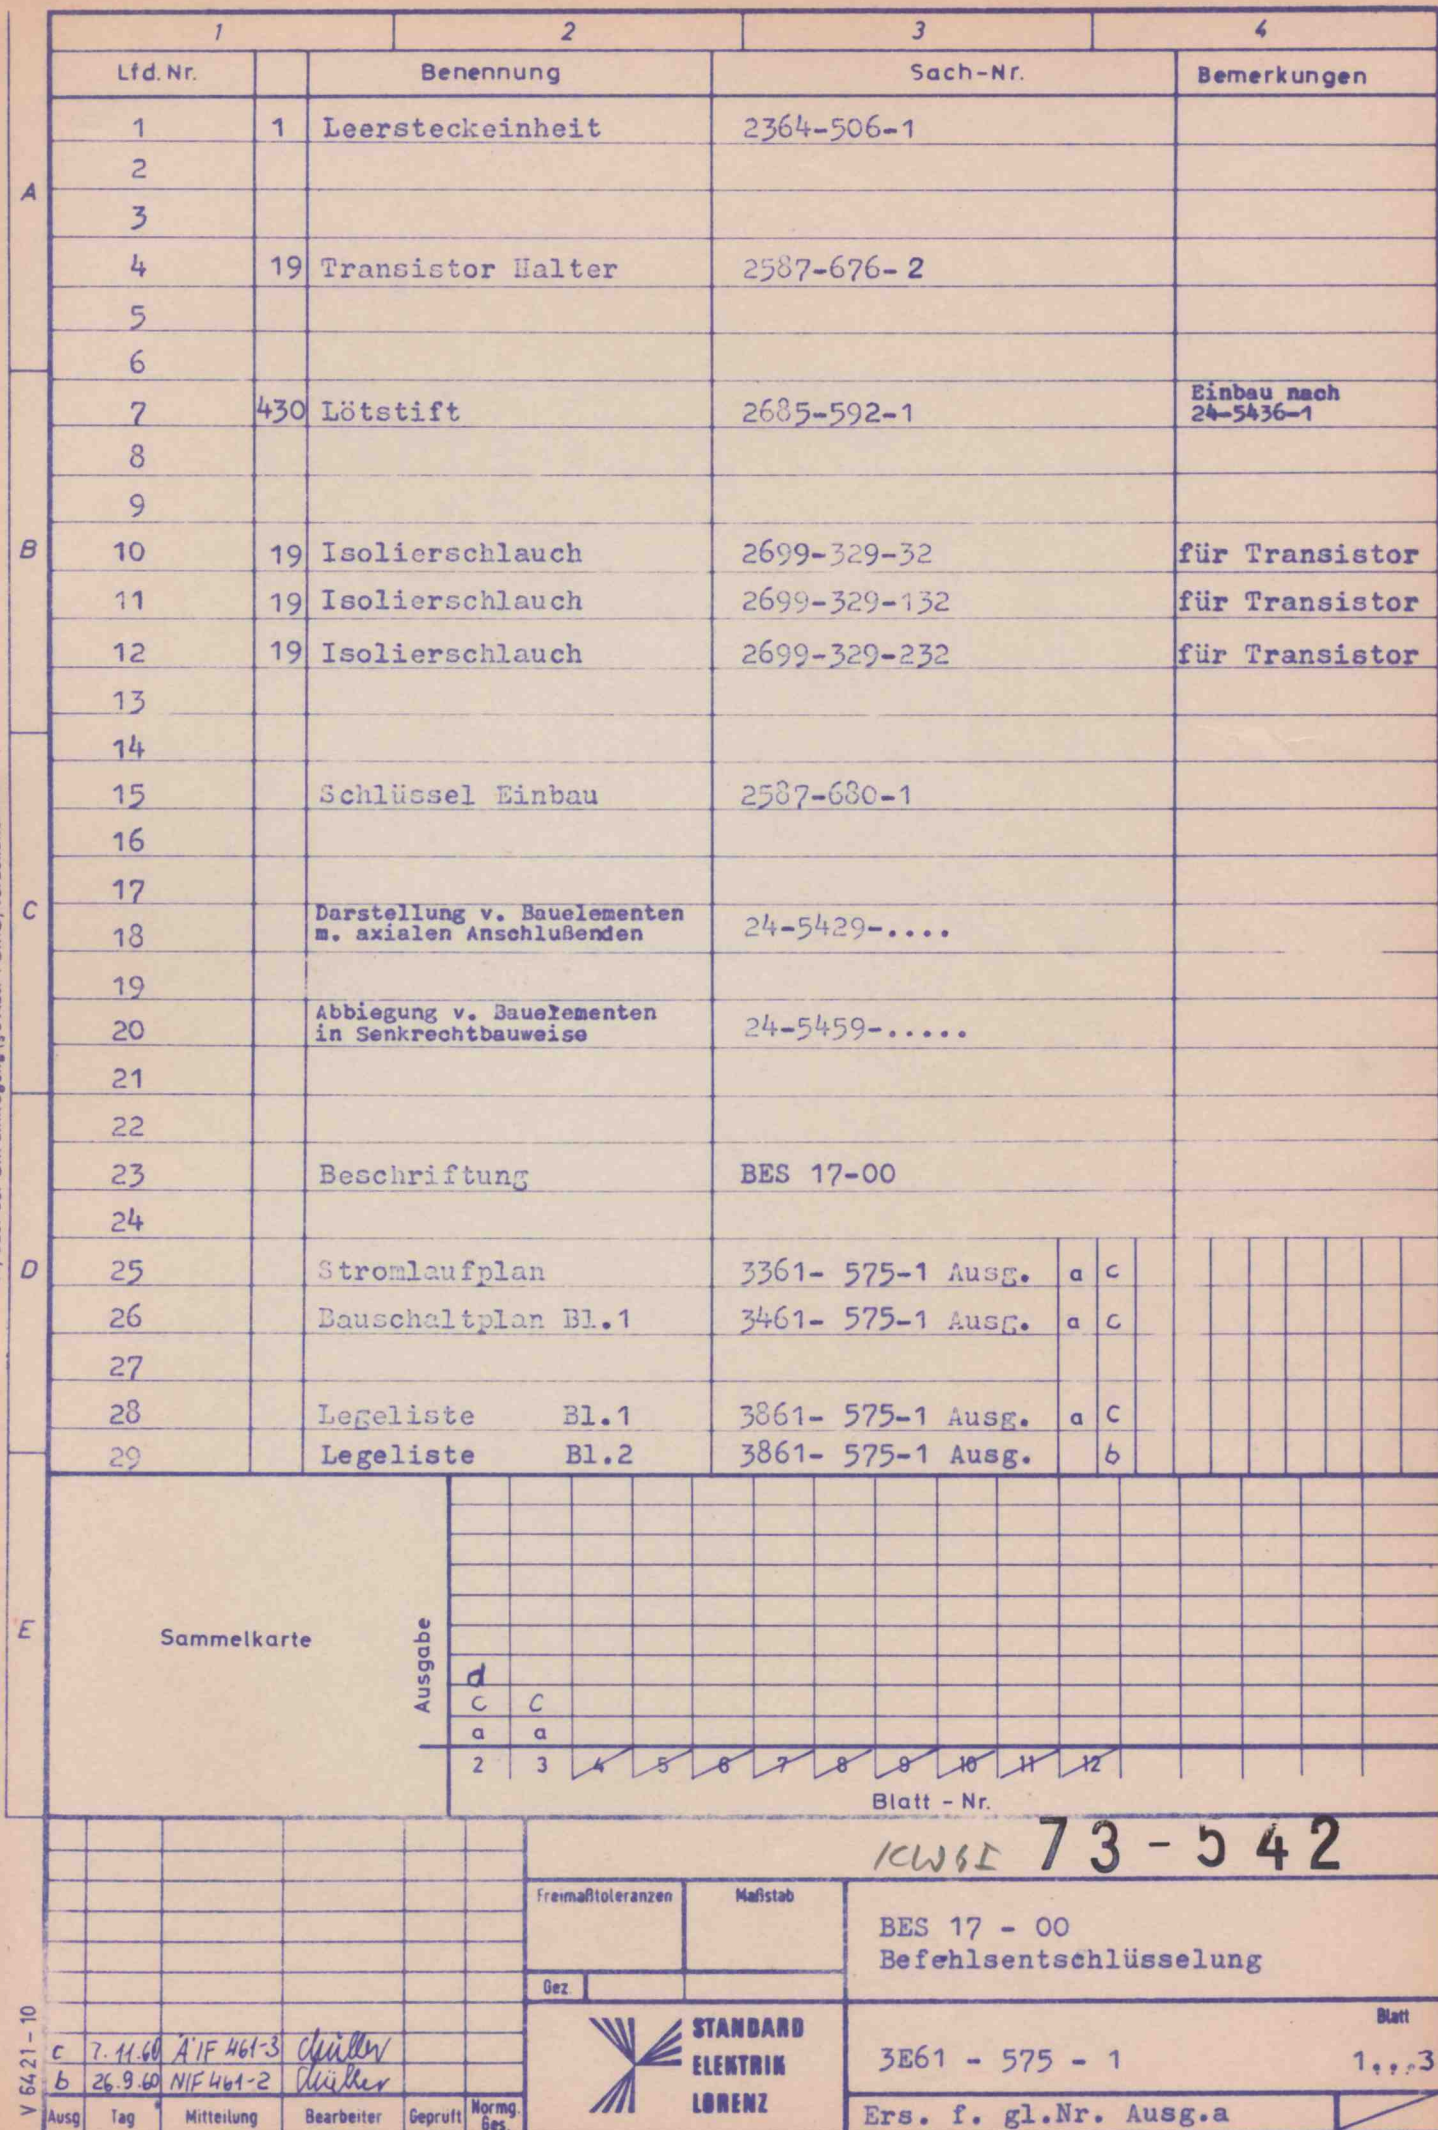 1 2 3 4
Lfd. Nr. Benennung Sach-Nr. Bemerkungen
1 1 Leersteckeinheit 2364-506-1
2
A
3
4 19 Transistor Halter 2587-676-2
5
6
7 430 Lötstift 2685-592-1 Einbau nach
24-5436-1
8
9
B
10 19 Isolierschlauch 2699-329-32 für Transistor
11 19 Isolierschlauch 2699-329-132 für Transistor
12 19 Isolierschlauch 2699-329-232 für Transistor
13
14
15 Schlüssel Einbau 2587-680-1
16
17
C
18 Darstellung v. Bauelementen
m. axialen Anschlußenden 24-5429-....
19
20 Abbiegung v. Bauelementen
in Senkrechtbauweise 24-5459-.....
21
22
23 Beschriftung BES 17-00
24
D
25 Stromlaufplan 3361- 575-1 Ausg. a c
26 Bauschaltplan Bl.1 3461- 575-1 Ausg. a c
27
28 Legeliste Bl.1 3861- 575-1 Ausg. a c
29 Legeliste Bl.2 3861- 575-1 Ausg. b
E
Sammelkarte
Ausgabe
d
c c
a a
2 3 4 5 6 7 8 9 10 11 12
Blatt - Nr.
73-542
Freimaßtoleranzen Maßstab
BES 17 - 00
Befehlsentschlüsselung
Gez.
STANDARD
ELEKTRIK
LORENZ
Blatt
3E61 - 575 - 1 1...3
Ers. f. gl.Nr. Ausg.a
c 7.11.60 ÄIF 461-3 Müller
b 26.9.60 NIF 461-2 Müller
Ausg Tag Mitteilung Bearbeiter Geprüft Normg. Ges.
V 6421-10